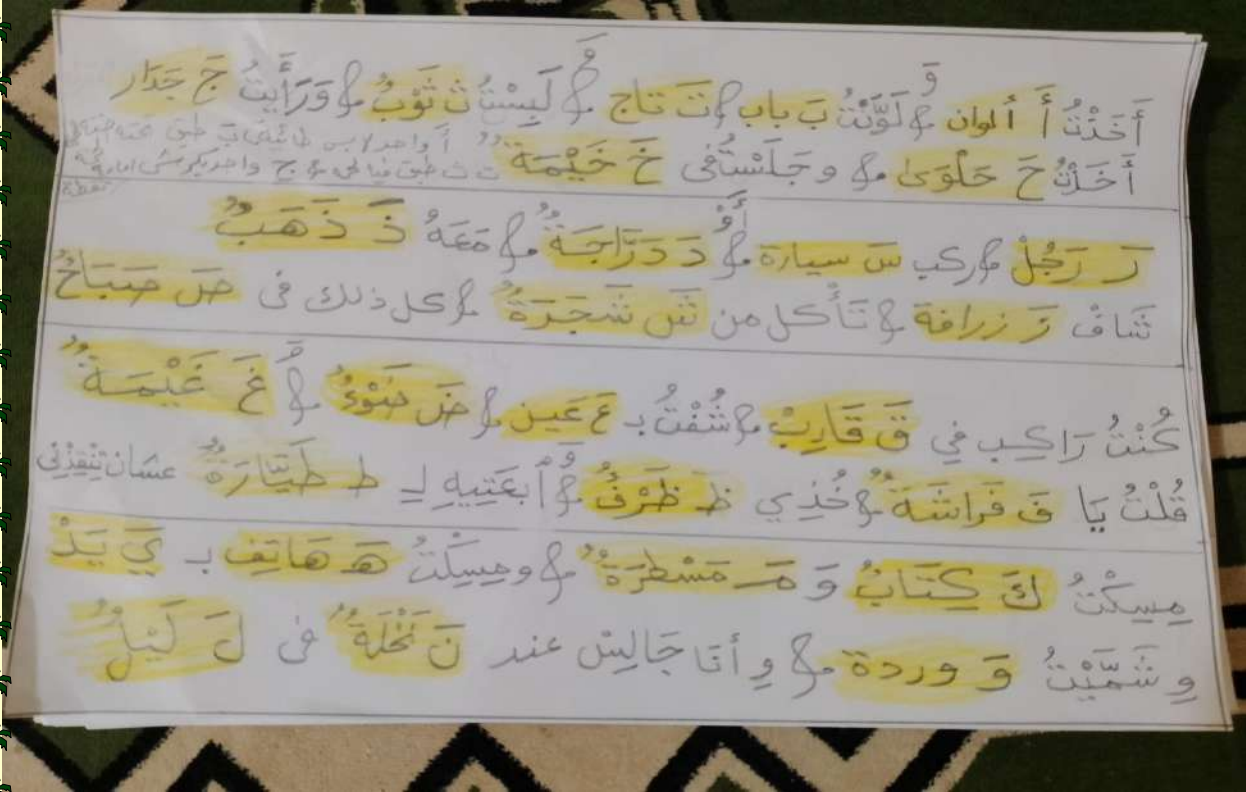 أَخَذْتُ أَ ألوان و لَوَّنْتُ بَ باب و تَ تاج و لَبِسْتُ ث ثَوْبٌ و وَرَأَيْتُ جَ جَدَار
أَخَذْتُ حَ حَلْوَىٰ و وجَلَسْتُ فى خَ خَيْمَةٌ
رَ رَجُلْ و ركب سَ سيارة أَوْ دَ دَرَّاجَةٌ و مَعَهُ ذَ ذَهَبٌ
شَافْ زَ زرافة و تَأْكل من شَ شَجَرَةٌ و كل ذلك فى صَ صَبَاحٌ
كُنْتُ رَاكِب في قَ قَارِبْ و شُفْتُ بـ عَ عَين و ضَ ضَوْءٌ و غَ غَيْمَةٌ
قُلْتُ يَا فَ فَراشَةٌ و خُذِي ظَ ظَرْفٌ و أبعَتِيهِ لِـ ط طَيَّارَةٌ عشان تِنْقِذْنِى
مِسِكْتُ كَ كِتَابٌ وَ مَـ مَسْطَرَةٌ و ومِسِكْتُ هَـ هَاتِف بـ يَ يَدْ
وِشَمَّيْتُ وَ وردة و وِأنَا جَالِسْ عند نَ نَخْلَةٌ فى لَ لَيْلٌ